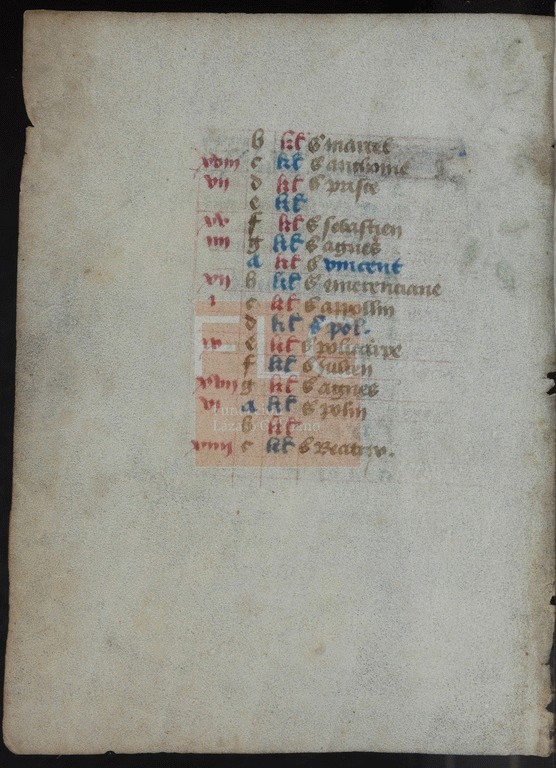 b kl' S marcel
xviii c kl' S anthoine
vii d kl' S prisce
e kl'
xv f kl' S sebastien
iiii g kl' S agnes
a kl' S vincent
xii b kl' S emerenciane
i c kl' S appollin
d kl' S pol.
ix e kl' S policarpe
f kl' S julien
xvii g kl' S agnes
vi a kl' S polin
b kl'
xiiii c kl' S Beatrix.
Fundación
Lázaro Galdiano